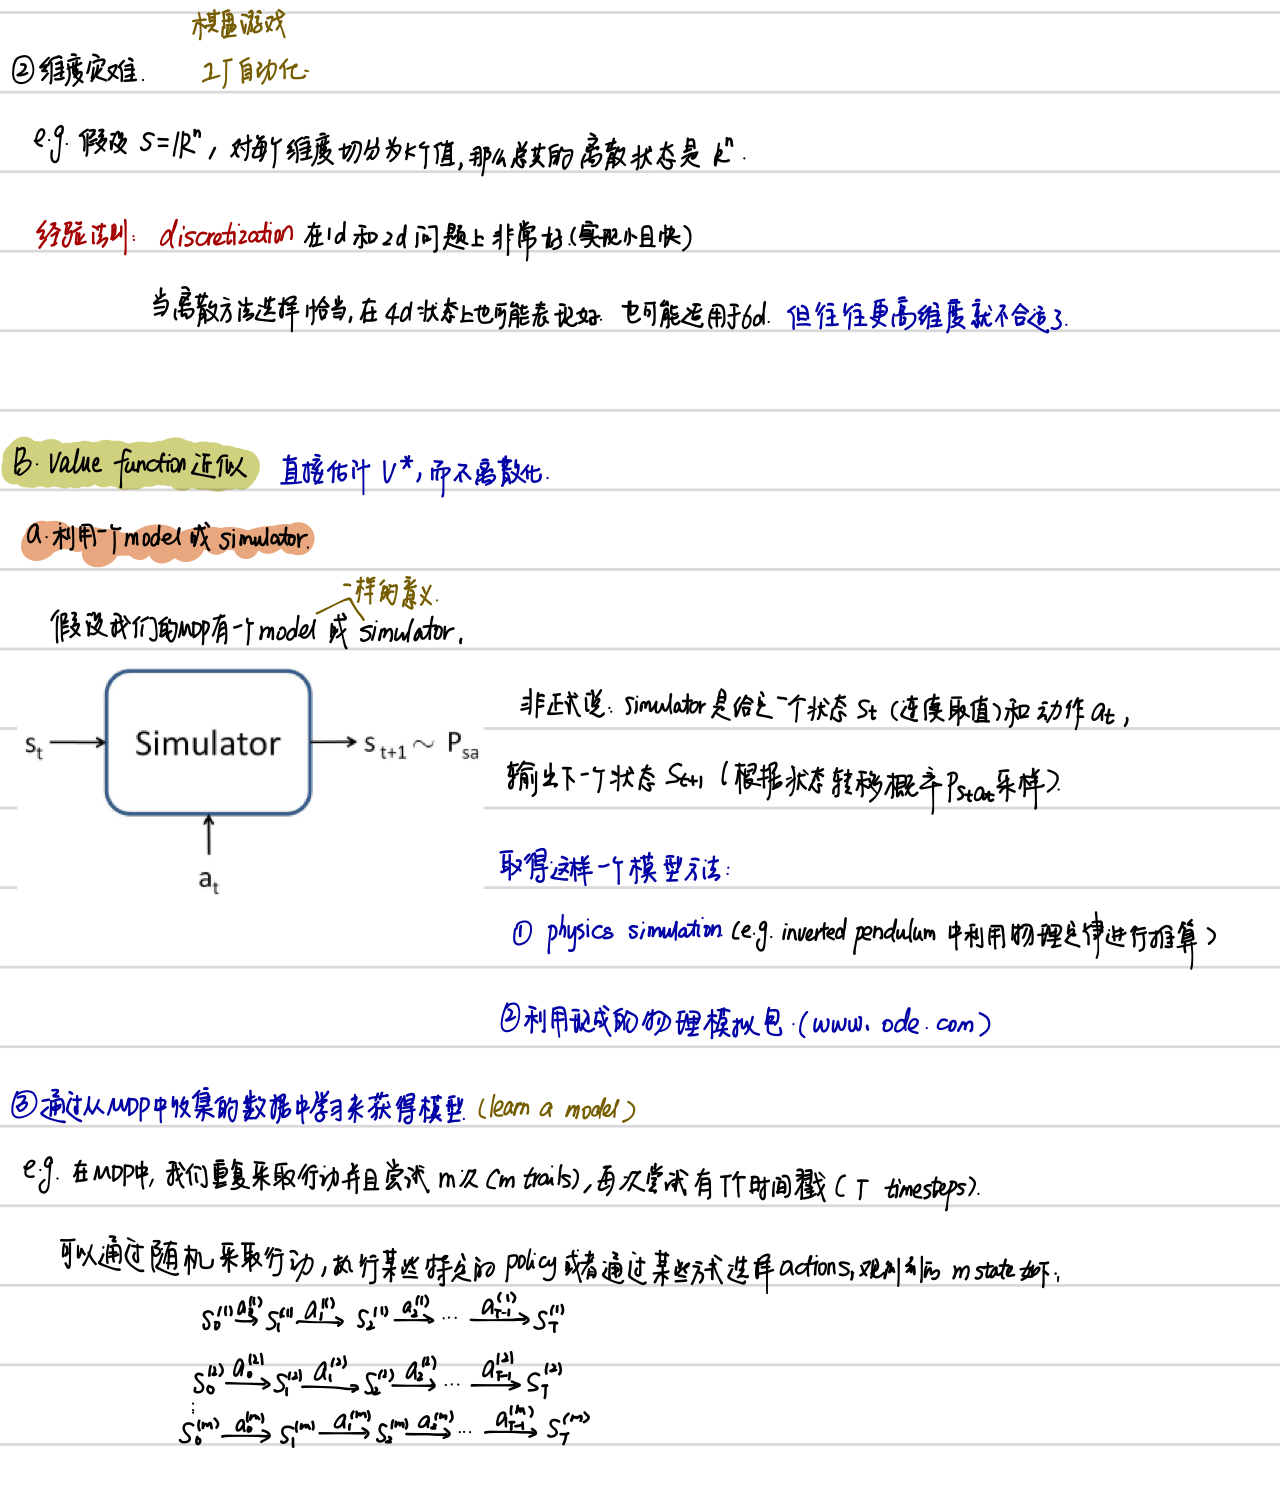 棋盘游戏
②维度灾难.
工厂自动化.
e.g. 假设 S=ℝⁿ, 对每个维度切分为k个值,那么总共的离散状态是 kⁿ.
经验法则: discretization 在1d 和 2d 问题上非常好.(实现小且快)
当离散方法选择恰当,在 4d 状态上也可能表现好. 也可能运用于6d. 但往往更高维度就不合适了.
B. Value function 近似 直接估计 V*, 而不离散化.
a.利用一个model 或 simulator.
一样的意义.
假设我们的MDP有一个model 或 simulator.
非正式说: simulator是给定一个状态 Sₜ (连续取值)和动作 aₜ,
输出下一个状态 Sₜ₊₁ (根据状态转移概率 P_{sₜaₜ}采样).
sₜ
Simulator
s ₜ₊₁ ~ P_{sa}
aₜ
取得这样一个模型方法:
① physics simulation (e.g. inverted pendulum 中利用物理定律进行推算)
②利用现成的物理模拟包.(www. ode. com)
③通过从MDP中收集的数据中学习来获得模型. (learn a model)
e.g. 在MDP中, 我们重复采取行动并且尝试 m次 (m trails),每次尝试有T个时间戳 (T timesteps).
可以通过随机采取行动,执行某些特定的 policy 或者通过某些方式选择actions,观测到的 m state如下:
S₀⁽¹⁾ —a₀⁽¹⁾→ S₁⁽¹⁾ —a₁⁽¹⁾→ S₂⁽¹⁾ —a₂⁽¹⁾→ ... —a_{T-1}⁽¹⁾→ S_T⁽¹⁾
S₀⁽²⁾ —a₀⁽²⁾→ S₁⁽²⁾ —a₁⁽²⁾→ S₂⁽²⁾ —a₂⁽²⁾→ ... —a_{T-1}⁽²⁾→ S_T⁽²⁾
⋮
S₀⁽ᵐ⁾ —a₀⁽ᵐ⁾→ S₁⁽ᵐ⁾ —a₁⁽ᵐ⁾→ S₂⁽ᵐ⁾ —a₂⁽ᵐ⁾→ ... —a_{T-1}⁽ᵐ⁾→ S_T⁽ᵐ⁾